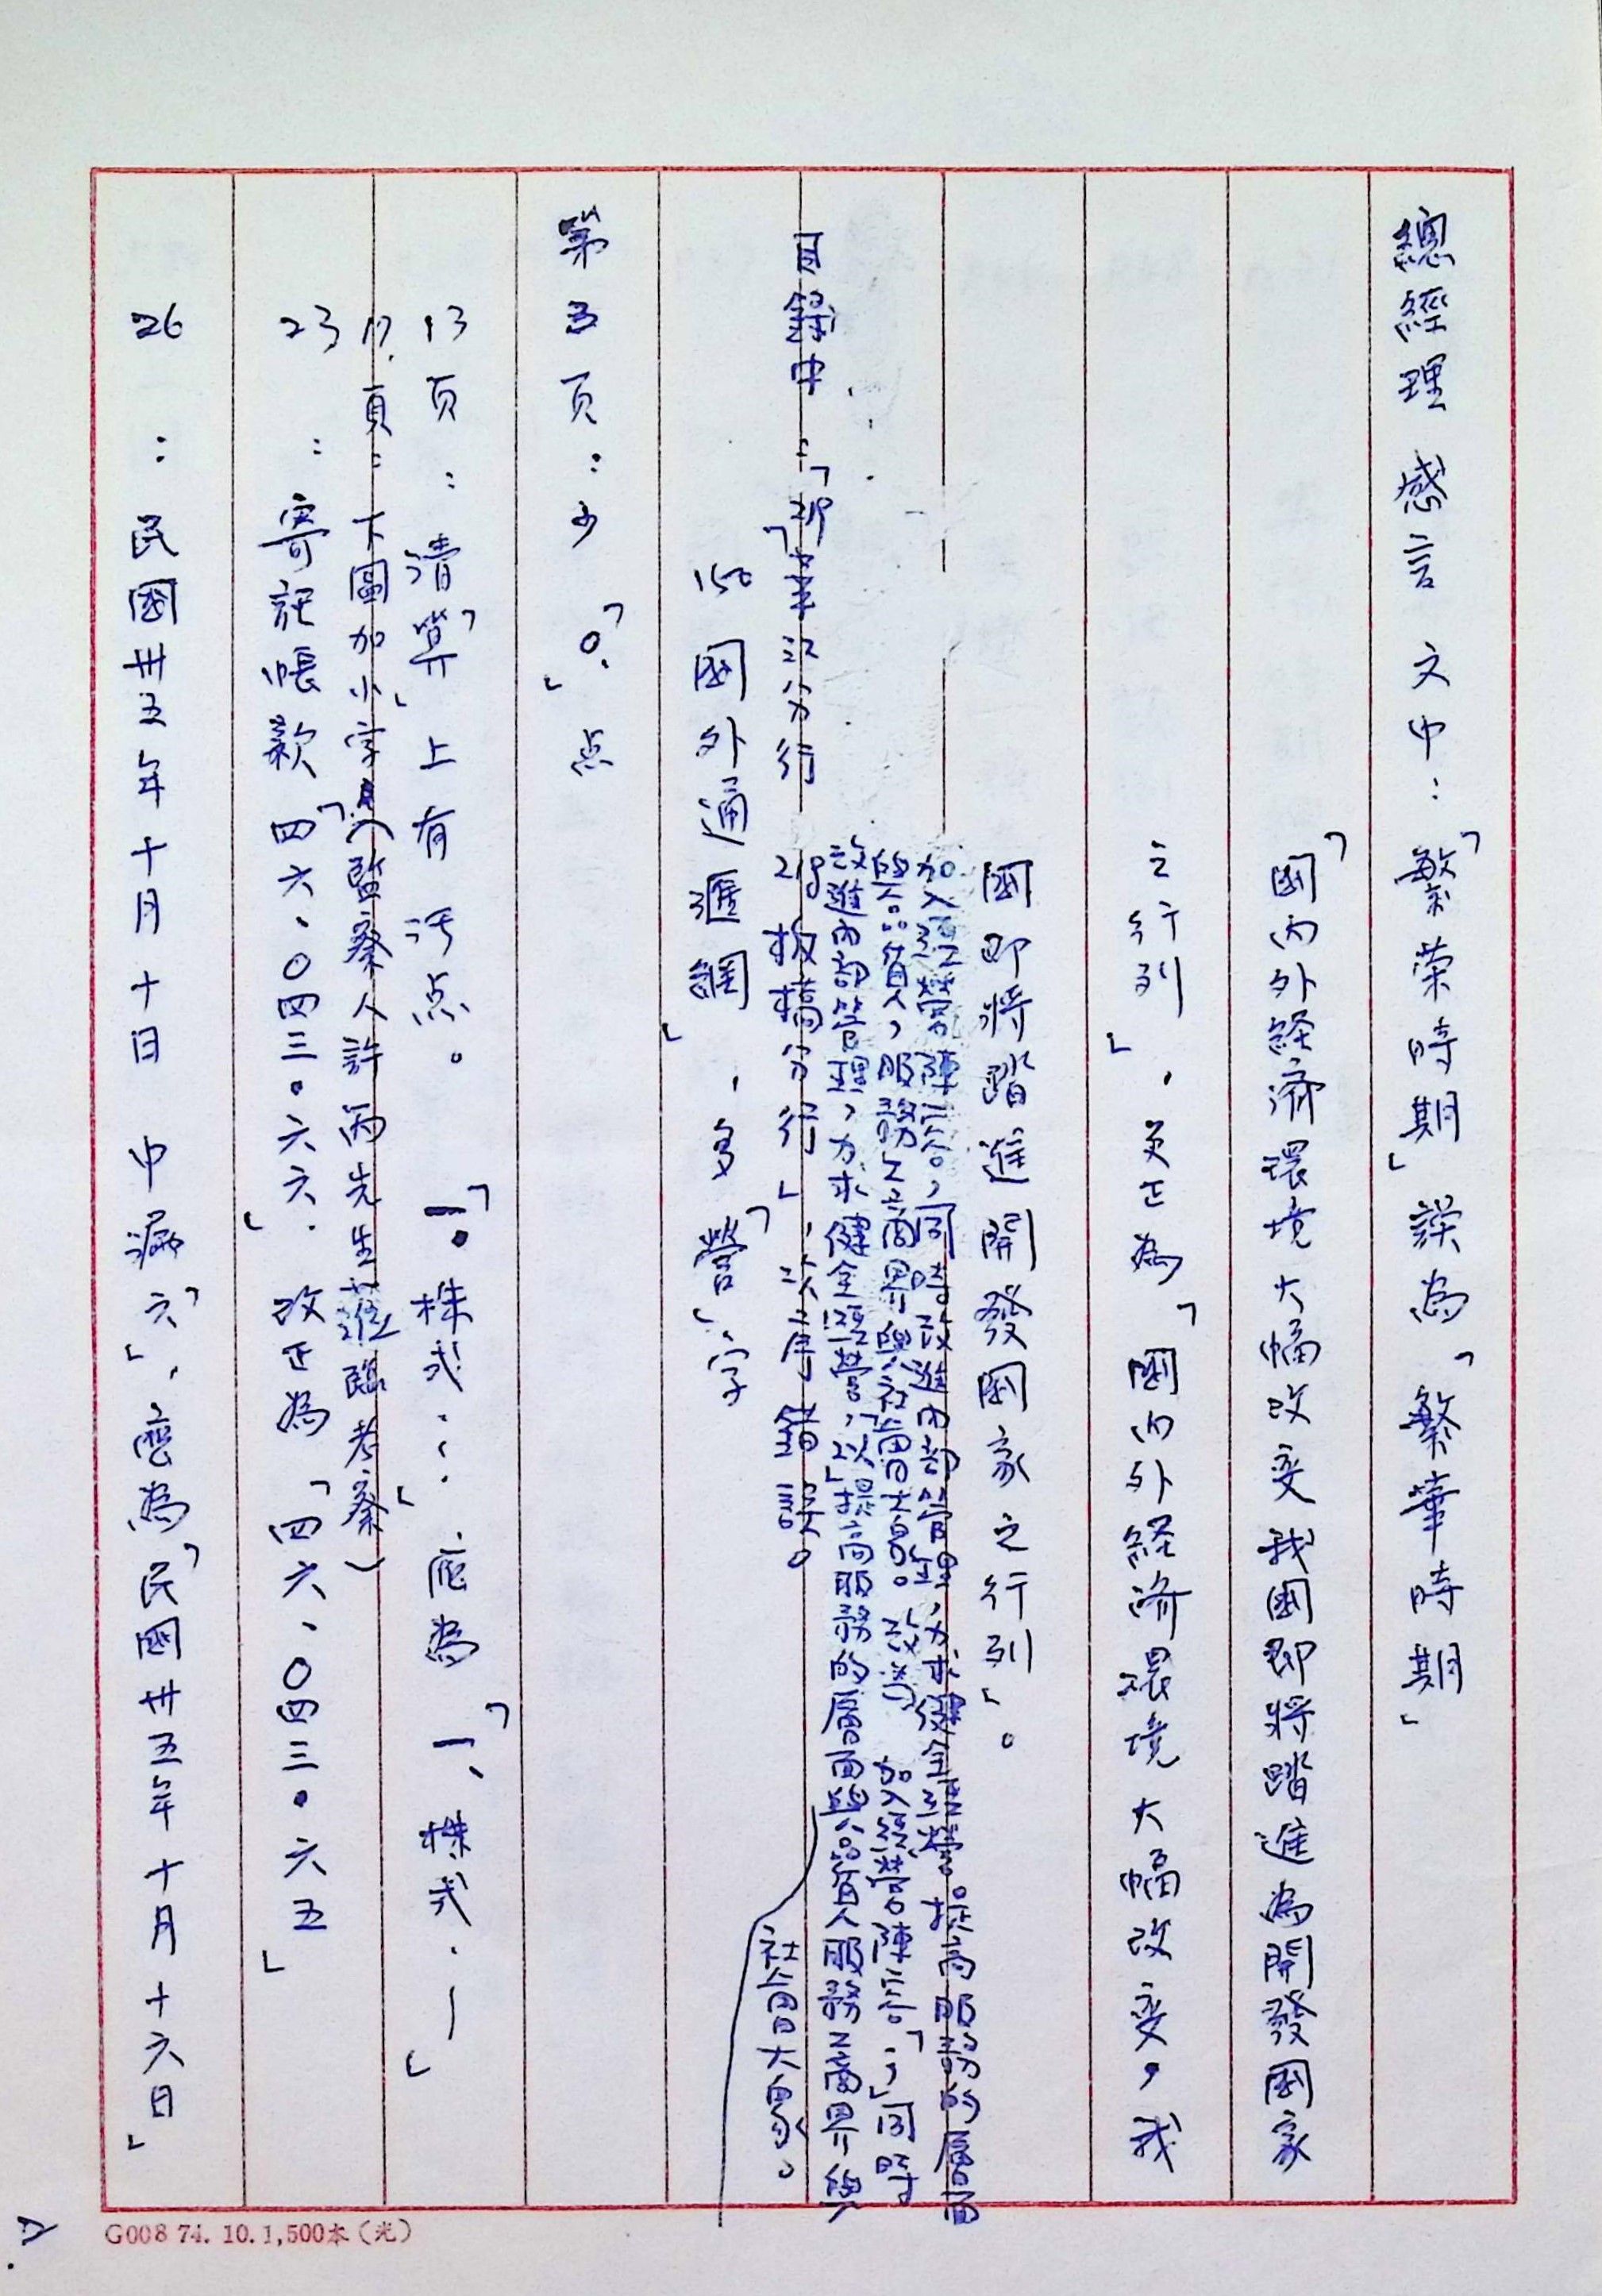 總經理感言文中：「繁荣時期」誤為「繁華時期」
「國内外経済環境大幅改变我國即將踏進為開發國家
之行列」，更正為「國内外経済環境大幅改变，我
國即將踏進開發國家之行列」。
加入經營陣容，同時改進内部管理，力求健全經營。提高服務的層面
與品質，服務工商界與社會大眾。改為 加入經營陣容「，」同時
改進内部管理，力求健全經營，「以」提高服務的層面與品質服務工商界與
社會大眾。
目錄中：「218「華江分行
219板橋分行」，次序錯誤。
150國外通滙網」，多「營」字
第5页：少「0.」点
13页：清「算」上有污点。「一。株式…」應為「一、株式·—」
17.頁：下圖加小字（監察人許丙先生蒞臨考察）
23：寄託帳款「四六、0四三。六六.」改正為「四六、0四三。六五」
26：民國卅五年十月十日 中漏「六」，應為「民國卅五年十月十六日」
G008 74. 10. 1,500本（光）